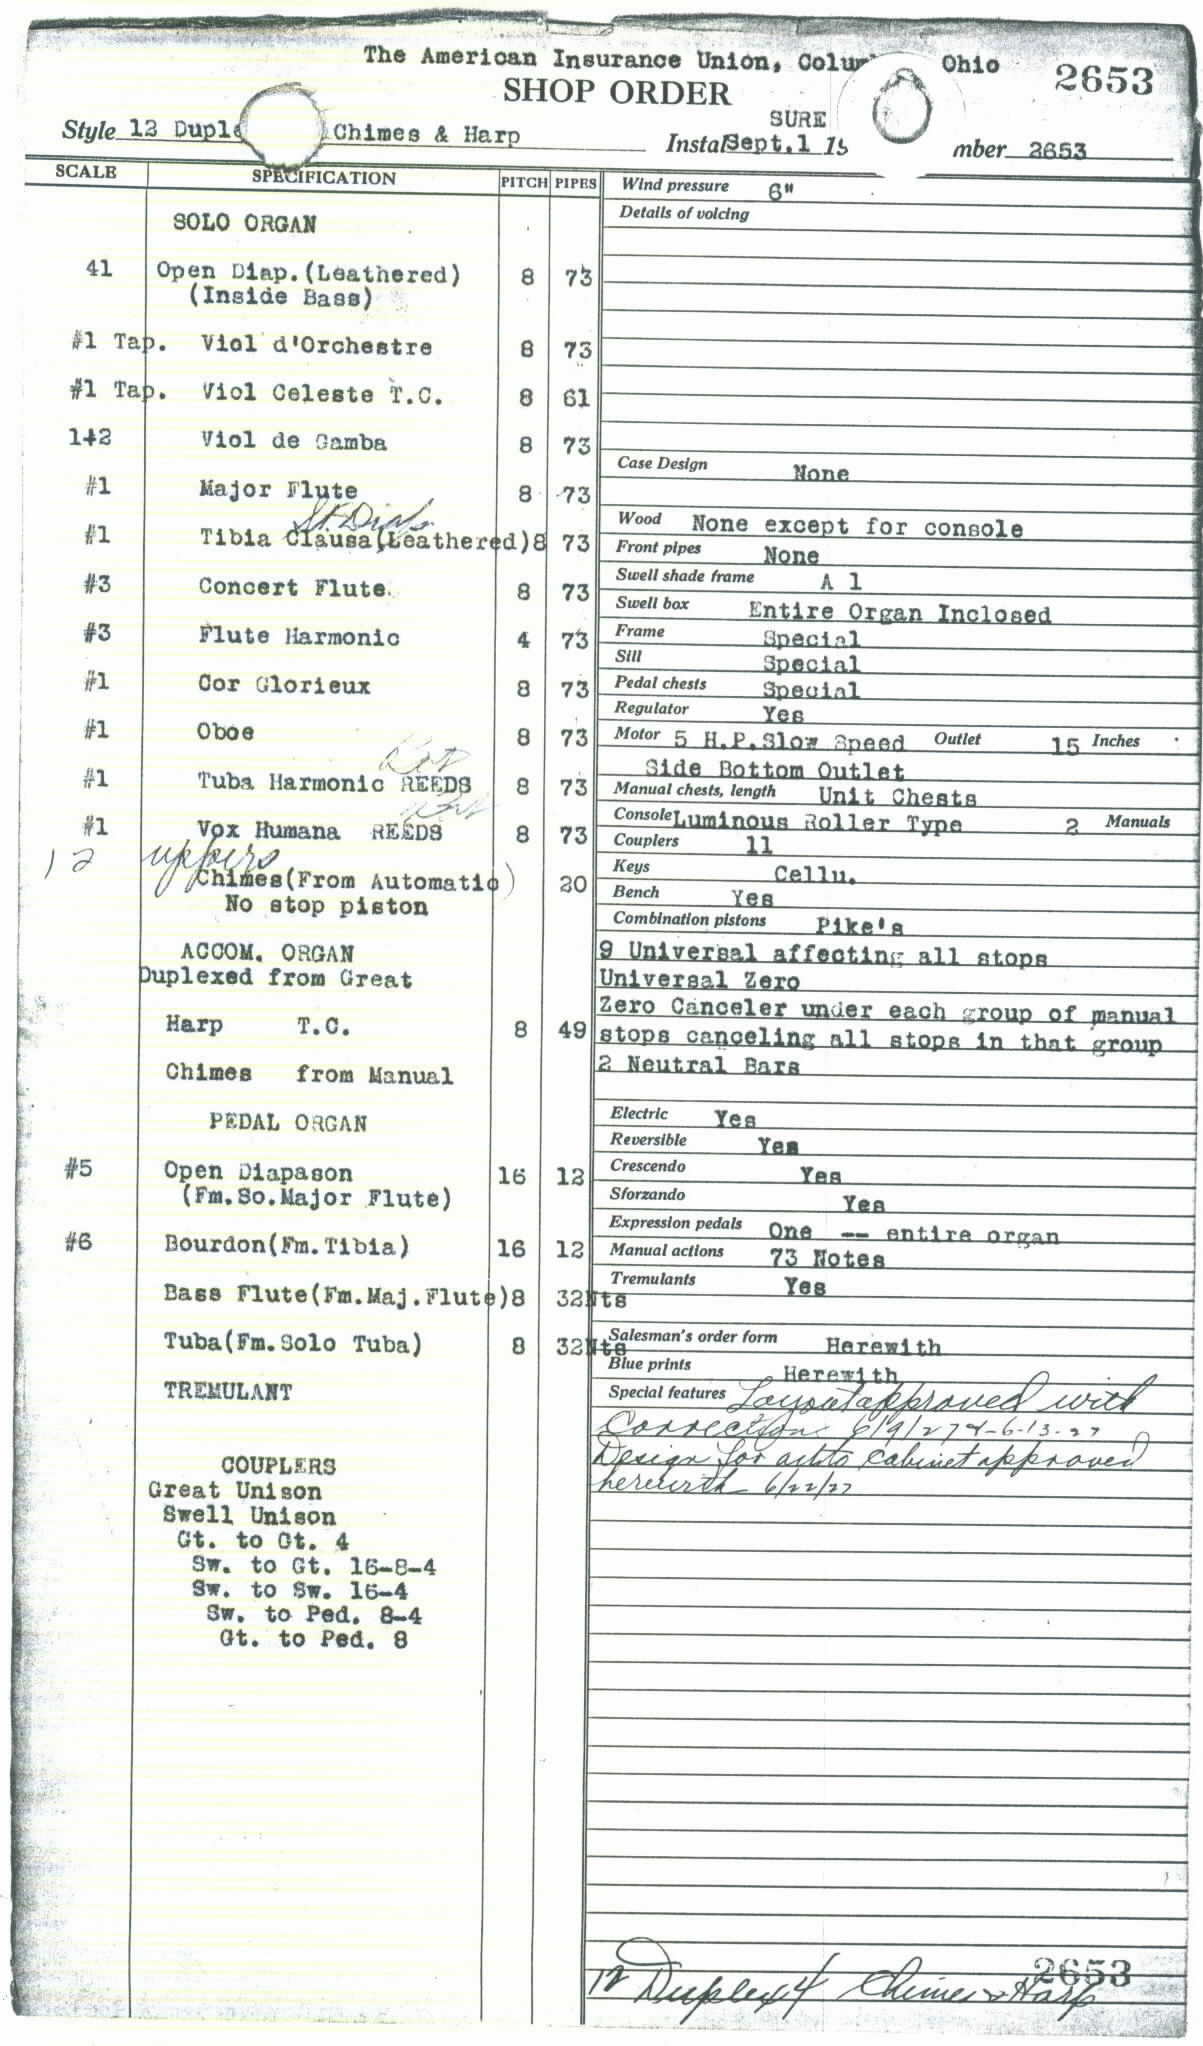 The American Insurance Union, Colum Ohio
2653
SHOP ORDER
SURE
Style 12 Duple Chimes & Harp
Instal Sept.1 15 mber 2653
SCALE SPECIFICATION PITCH PIPES
SOLO ORGAN
41 Open Diap.(Leathered) 8 73
(Inside Bass)
#1 Tap. Viol d'Orchestre 8 73
#1 Tap. Viol Celeste T.C. 8 61
1+2 Viol de Gamba 8 73
#1 Major Flute 8 73
St. Diap.
#1 Tibia Clausa(Leathered)8 73
#3 Concert Flute 8 73
#3 Flute Harmonic 4 73
#1 Cor Glorieux 8 73
#1 Oboe 8 73
#1 Tuba Harmonic REEDS 8 73
#1 Vox Humana REEDS 8 73
12 uppers
Chimes(From Automatic) 20
No stop piston
ACCOM. ORGAN
Duplexed from Great
Harp T.C. 8 49
Chimes from Manual
PEDAL ORGAN
#5 Open Diapason 16 12
(Fm.So.Major Flute)
#6 Bourdon(Fm.Tibia) 16 12
Bass Flute(Fm.Maj.Flute)8 32Nts
Tuba(Fm.Solo Tuba) 8 32Nts
TREMULANT
COUPLERS
Great Unison
Swell Unison
Gt. to Gt. 4
Sw. to Gt. 16-8-4
Sw. to Sw. 16-4
Sw. to Ped. 8-4
Gt. to Ped. 8
Wind pressure 6"
Details of voicing
Case Design None
Wood None except for console
Front pipes None
Swell shade frame A 1
Swell box Entire Organ Inclosed
Frame Special
Sill Special
Pedal chests Special
Regulator Yes
Motor 5 H.P.Slow Speed Outlet 15 Inches
Side Bottom Outlet
Manual chests, length Unit Chests
Console Luminous Roller Type 2 Manuals
Couplers 11
Keys Cellu.
Bench Yes
Combination pistons Pike's
9 Universal affecting all stops
Universal Zero
Zero Canceler under each group of manual
stops canceling all stops in that group
2 Neutral Bars
Electric Yes
Reversible Yes
Crescendo Yes
Sforzando Yes
Expression pedals One -- entire organ
Manual actions 73 Notes
Tremulants Yes
Salesman's order form Herewith
Blue prints Herewith
Special features Layout approved with
Corrections 6/9/27 & 6-13-27
Design for auto cabinet approved
herewith 6/22/27
2653
12 Duplex 4 Chimes & Harp